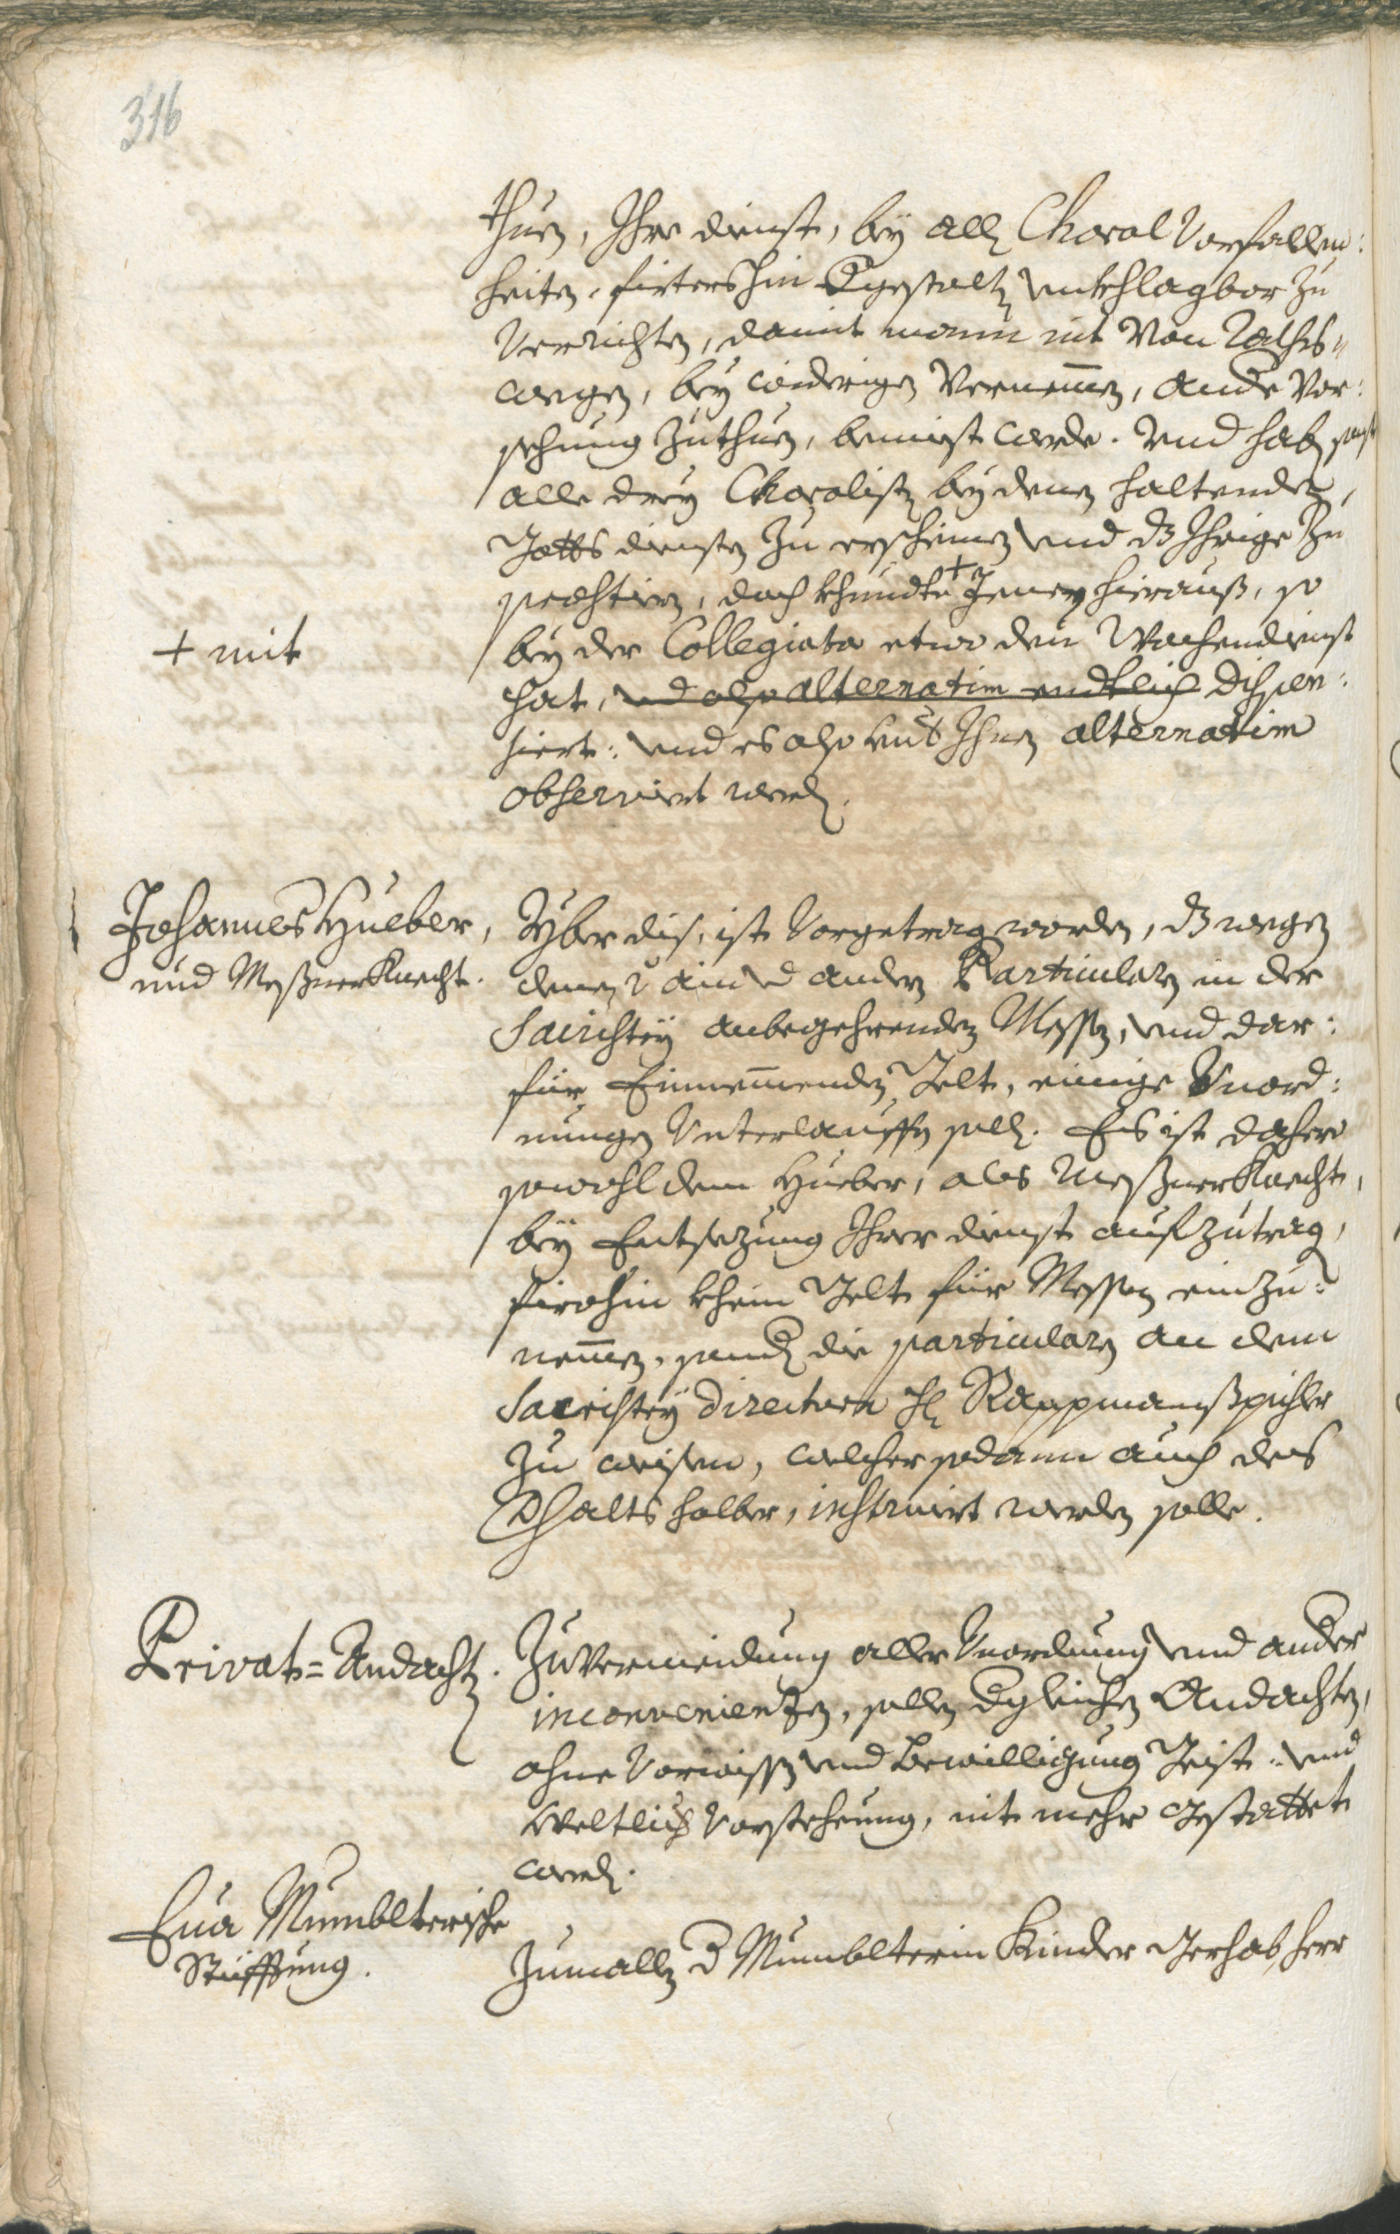 316
thuen, Ihre dienst, bey allen Choral Vorfallen:
heiten, firtershin dergestalten unkhlagbar zu
Verrichten, damit mann nit Von Raths=
wegen, bey widerigen Vernemmen, andere Vor:
sehung zuthuen, bemiest werde. Und haben sonst
alle drey Choralisten bey denen haltenden,
Gotts diensten zu erscheinen und dz Ihrige zu
praestiren, doch khundte + Jener hierauß, so
bey der Collegiata etwo den Wochendienst
+ mit
hat, und also alternatim endtlich dispen:
siert: und es also unter Ihnen alternatim
observiert werden.
Johannes Hueber,
und MeßnerKnecht.
Yber dis, ist Vorgetragen worden, dz wegen
denen von ain und andern Particularn in der
Sacristey anbegehrenden Messen, und dar:
für Einnemmenden Gelt, einige Unord:
nungen Unterlauffen sollen. Es ist dahero
sowohl dem Hueber, als MeßnerKnecht,
bey Entsezung Ihrer dienst aufzutragen,
firohin khein Gelt für Messen einzu:
nemmen, sondern die particularn an dem
Sacristey Directorn Hn Rappmanßpichler
zu weisen, welcher sodann auch des
Verhalts halber, instruirt werden solle.
Privat=Andachten.
Zu Vermeidung aller Unordnung und anderer
inconvenientzen, sollen dergleichen Andachten,
ohne Vorwissen und Bewilligung Geist: und
Weltlicher Vorstehung, nit mehr gestattet
werden.
Eua Mumblterische
Stüfftung.
Zumallen der Mumblterin Kinder Gerhab, Herr